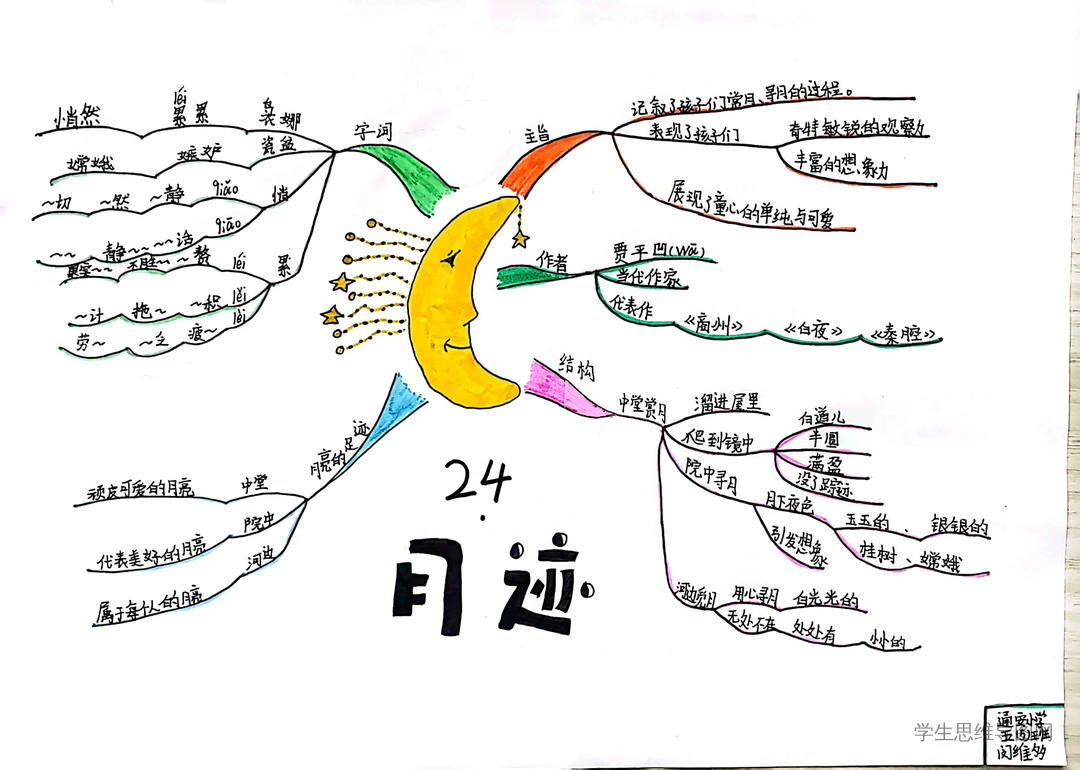 24
月迹
字词
悄然
léi
累累
袅娜
嫦娥
嫉妒
瓷盆
~切 ~然 ~静 qiāo 悄
~~ 静~~~~话 qiǎo
果实~~ 不胜~~ 赘 léi 累
~计 拖~ ~积 lěi
劳~ ~乏 疲~ lèi
主旨
记叙了孩子们赏月、寻月的过程。
表现了孩子们
奇特敏锐的观察力
丰富的想象力
展现了童心的单纯与可爱
作者
贾平凹(wā)
当代作家
代表作 《商州》 《白夜》 《秦腔》
结构
中堂赏月
溜进屋里
爬到镜中
白道儿
半圆
满盈
没了踪迹
院中寻月
月下夜色
玉玉的、银银的
引发想象
桂树、嫦娥
河边赏月
用心寻月 白光光的
无处不在 处处有 小小的
月亮的足迹
中堂 顽皮可爱的月亮
院中 代表美好的月亮
河边 属于每个人的月亮
学生思维导图网